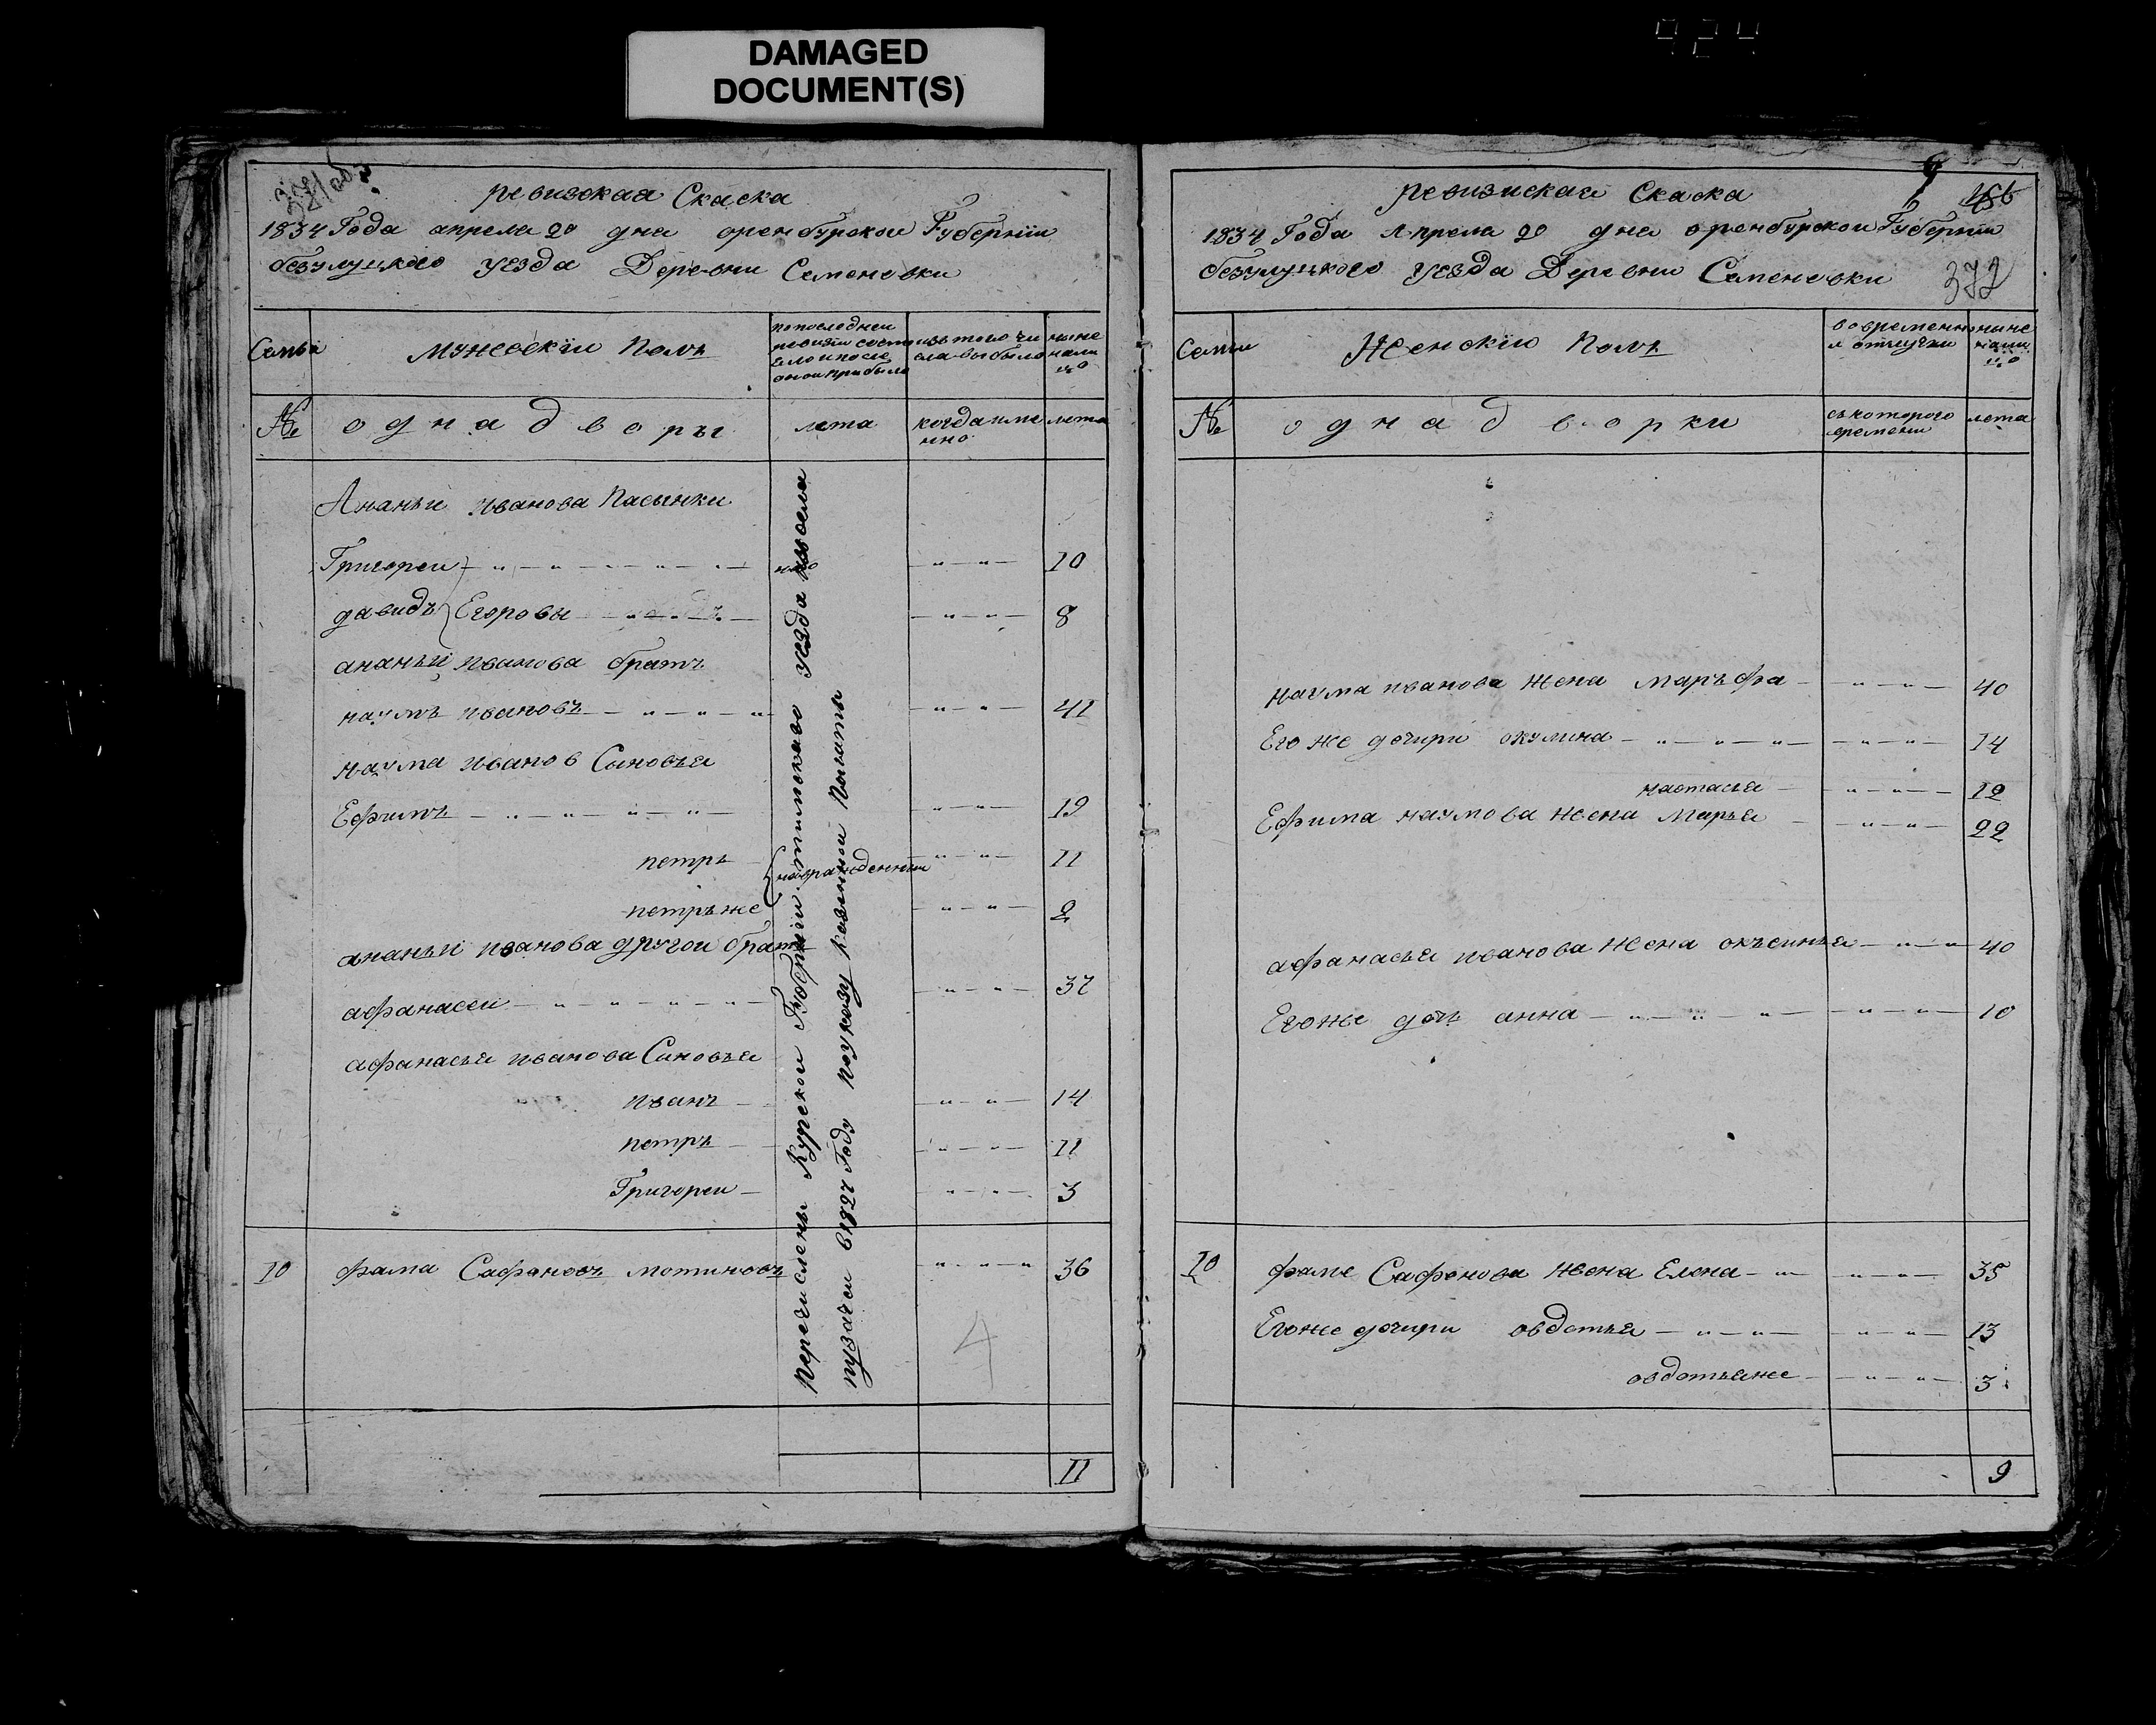 DAMAGED
DOCUMENT(S)
424
371об
ревизская Скаска
1834 Года апреля 20 дня оренбурской Губернии
безулуцкаго уезда Деревни Семеновки
Семьи
Мужескiи Полъ
попоследнеи ревизiи состояло и после онои прибыло
изътого числа выбыло
ныне налицо
№
однадворы
лета
когда имянно
лета
Ананьи иванова Пасынки
Григореи 10
давидъ Егоровы 8
ананьи иванова братъ
наумъ ивановъ 41
наума иванов Сыновья
Ефимъ 19
петръ новорожденныи 11
петръ же 2
ананьи иванова другои братъ
афанасеи 37
афанасья иванова Сыновья
иванъ 14
петръ 11
Григореи 3
10 фама Сафоновъ мотиновъ 36
4
11
Перечислены Курскои Губернiи тимскаго уезда изсела
пузачеи в1827 Году поуказу Казеннои Палаты
ревизиская Скаска
1834 Года Апреля 20 дня оренбурскои Губернiи
безулуцкого уезда Деревни Семеновки
372
Семьи
Женскiи Полъ
вовременнои отлучки
ныне налицо
№
однадворки
съкоторого времени
лета
наума иванова жена маръфа 40
Его же дочири окулина 14
настасья 12
Ефима наумова жена марья 22
афанасья иванова жена окъсинья 40
Егоже дочь анна 10
10 фаме Сафонова жена Елена 35
Егоже дочири овдотья 13
овдотьяже 3
9